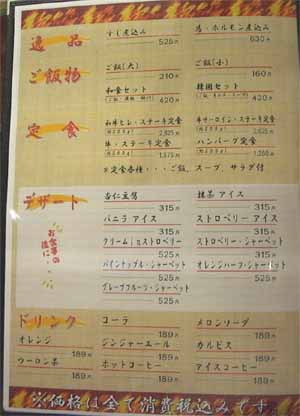 逸品
すじ煮込み
525円
ホルモン煮込み
630円
ご飯物
ご飯(大)
210円
ご飯(小)
160円
和食セット
420円
韓国セット
420円
定食
和牛ヒレ・ステーキ定食
2,625円
牛サーロイン・ステーキ定食
2,625円
牛・ステーキ定食
1,575円
ハンバーグ定食
※定食各種・・・ご飯、スープ、サラダ付
デザート
お食事の後に…
杏仁豆腐
315円
抹茶アイス
315円
バニラアイス
315円
ストロベリーアイス
315円
クリーム|ストロベリー
525円
ストロベリー・シャーベット
525円
パイナップル・シャーベット
525円
オレンジハーフ・シャーベット
525円
グレープフルーツ・シャーベット
525円
ドリンク
コーラ
189円
メロンソーダ
189円
オレンジ
189円
ジンジャーエール
189円
カルピス
189円
ウーロン茶
189円
ホットコーヒー
189円
アイスコーヒー
189円
※価格は全て消費税込みです